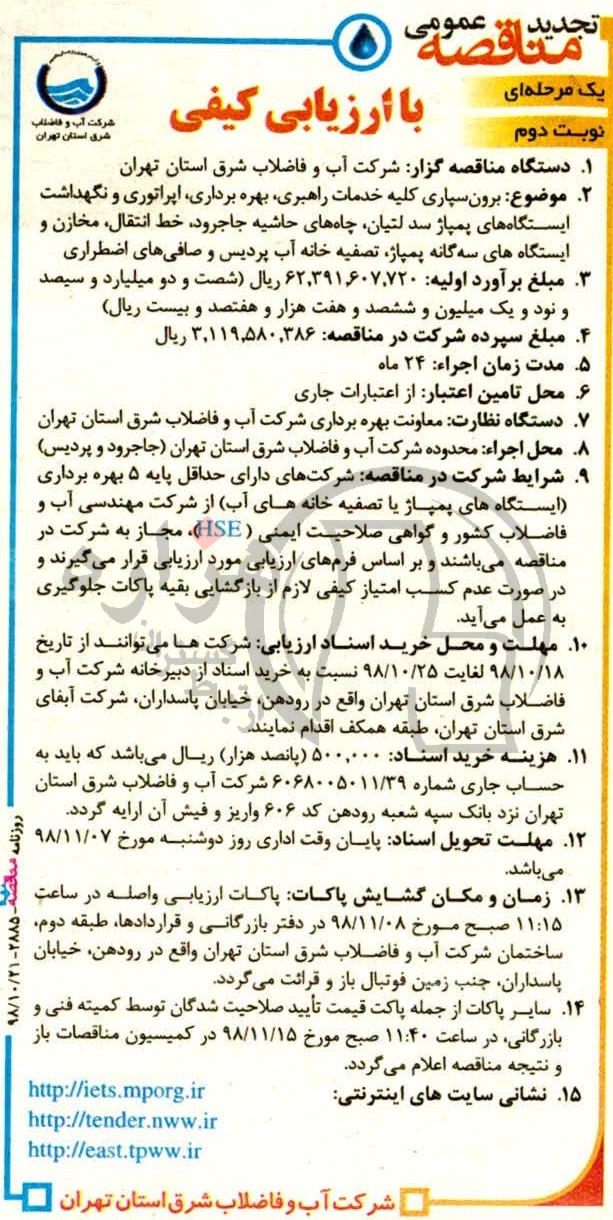 تجدید عمومی
مناقصه
یک مرحله‌ای
نوبت دوم
با ارزیابی کیفی
شرکت آب و فاضلاب
شرق استان تهران
۱. دستگاه مناقصه گزار: شرکت آب و فاضلاب شرق استان تهران
۲. موضوع: برون‌سپاری کلیه خدمات راهبری، بهره برداری، اپراتوری و نگهداشت
ایستگاه‌های پمپاژ سد لتیان، چاه‌های حاشیه جاجرود، خط انتقال، مخازن و
ایستگاه های سه‌گانه پمپاژ، تصفیه خانه آب پردیس و صافی‌های اضطراری
۳. مبلغ برآورد اولیه: ۶۲,۳۹۱,۶۰۷,۷۲۰ ریال (شصت و دو میلیارد و سیصد
و نود و یک میلیون و ششصد و هفت هزار و هفتصد و بیست ریال)
۴. مبلغ سپرده شرکت در مناقصه: ۳,۱۱۹,۵۸۰,۳۸۶ ریال
۵. مدت زمان اجراء: ۲۴ ماه
۶. محل تامین اعتبار: از اعتبارات جاری
۷. دستگاه نظارت: معاونت بهره برداری شرکت آب و فاضلاب شرق استان تهران
۸. محل اجراء: محدوده شرکت آب و فاضلاب شرق استان تهران (جاجرود و پردیس)
۹. شرایط شرکت در مناقصه: شرکت‌های دارای حداقل پایه ۵ بهره برداری
(ایستگاه های پمپاژ یا تصفیه خانه های آب) از شرکت مهندسی آب و
فاضلاب کشور و گواهی صلاحیت ایمنی (HSE)، مجاز به شرکت در
مناقصه می‌باشند و بر اساس فرم‌های ارزیابی مورد ارزیابی قرار می‌گیرند و
در صورت عدم کسب امتیاز کیفی لازم از بازگشایی بقیه پاکات جلوگیری
به عمل می‌آید.
۱۰. مهلت و محل خرید اسناد ارزیابی: شرکت ها می‌توانند از تاریخ
۹۸/۱۰/۱۸ لغایت ۹۸/۱۰/۲۵ نسبت به خرید اسناد از دبیرخانه شرکت آب و
فاضلاب شرق استان تهران واقع در رودهن، خیابان پاسداران، شرکت آبفای
شرق استان تهران، طبقه همکف اقدام نمایند.
۱۱. هزینه خرید اسناد: ۵۰۰,۰۰۰ (پانصد هزار) ریال می‌باشد که باید به
حساب جاری شماره ۶۰۶۸۰۰۵۰۱۱/۳۹ شرکت آب و فاضلاب شرق استان
تهران نزد بانک سپه شعبه رودهن کد ۶۰۶ واریز و فیش آن ارایه گردد.
۱۲. مهلت تحویل اسناد: پایان وقت اداری روز دوشنبه مورخ ۹۸/۱۱/۰۷
می‌باشد.
۱۳. زمان و مکان گشایش پاکات: پاکات ارزیابی واصله در ساعت
۱۱:۱۵ صبح مورخ ۹۸/۱۱/۰۸ در دفتر بازرگانی و قراردادها، طبقه دوم،
ساختمان شرکت آب و فاضلاب شرق استان تهران واقع در رودهن، خیابان
پاسداران، جنب زمین فوتبال باز و قرائت می‌گردد.
۱۴. سایر پاکات از جمله پاکت قیمت تأیید صلاحیت شدگان توسط کمیته فنی و
بازرگانی، در ساعت ۱۱:۴۰ صبح مورخ ۹۸/۱۱/۱۵ در کمیسیون مناقصات باز
و نتیجه مناقصه اعلام می‌گردد.
۱۵. نشانی سایت های اینترنتی:
http://iets.mporg.ir
http://tender.nww.ir
http://east.tpww.ir
شرکت آب و فاضلاب شرق استان تهران
روزنامه مناقصه - ۲۸۸۵ - ۹۸/۱۰/۲۱